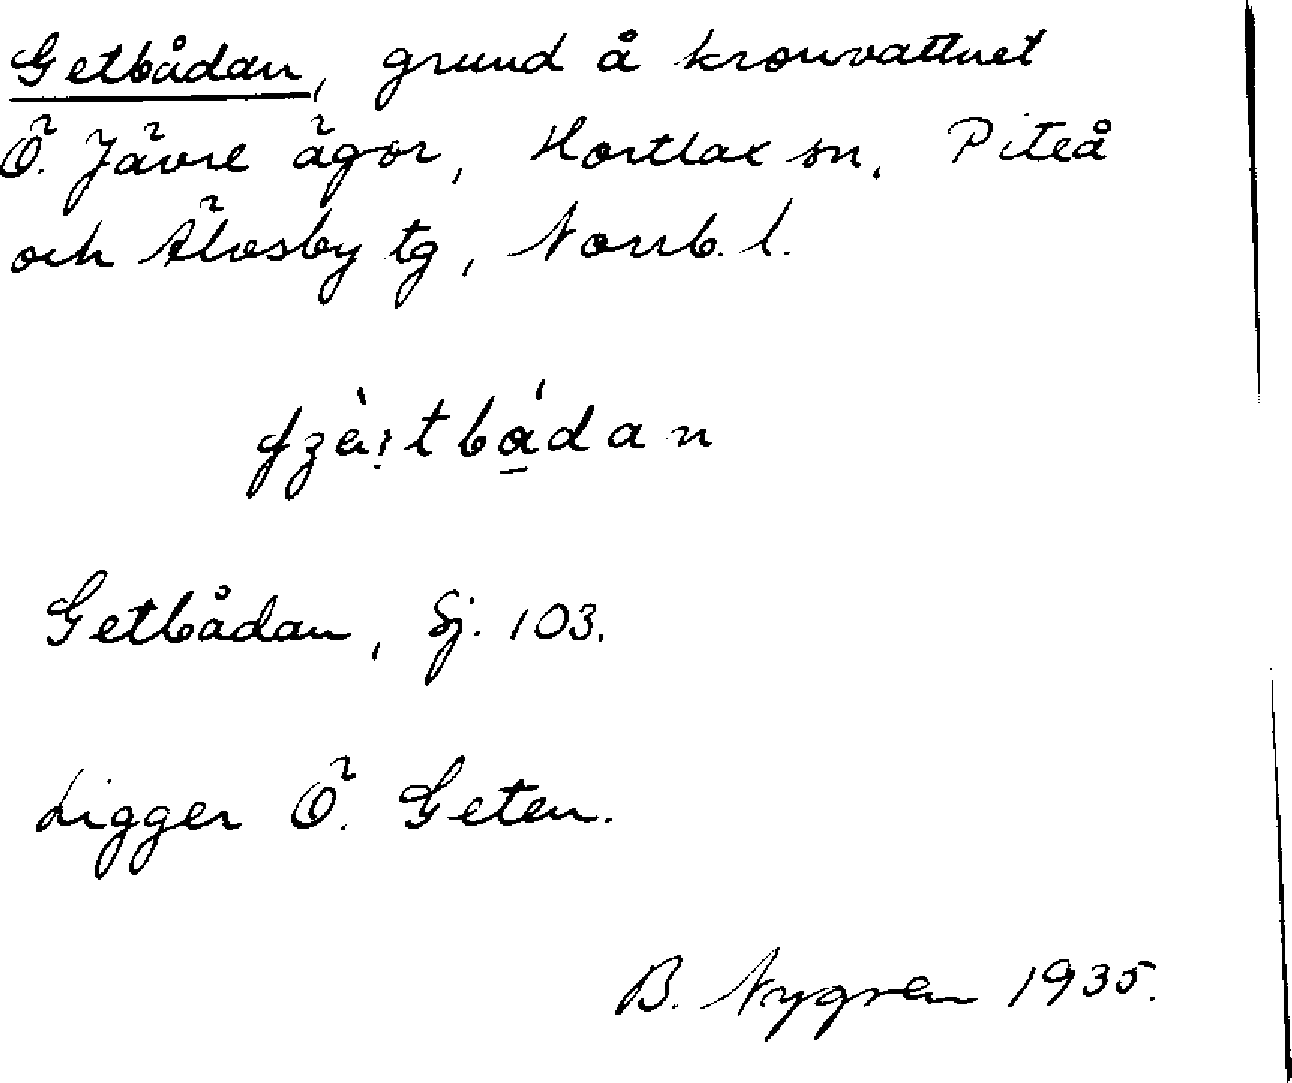 Getbådan, grund å kronvattnet
Ö. Jävre ägor, Hortlax sn. Piteå
och Älvsby tg, Norrb. l.
Getbådan, Sj. 103.
Ligger Ö. Geten.
B. Nygren 1935.